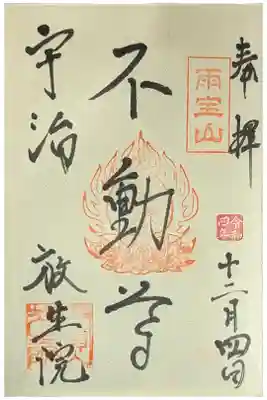 奉拝
雨宝山
令和四年
十二月四日
不動尊
宇治
放生院